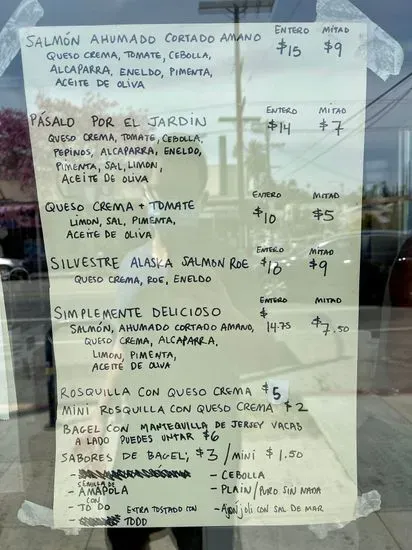 SALMÓN AHUMADO CORTADO AMANO ENTERO $15 MITAD $9
QUESO CREMA, TOMATE, CEBOLLA,
ALCAPARRA, ENELDO, PIMENTA,
ACEITE DE OLIVA
PÁSALO POR EL JARDIN ENTERO $14 MITAD $7
QUESO CREMA, TOMATE, CEBOLLA,
PEPINOS, ALCAPARRA, ENELDO,
PIMENTA, SAL, LIMON,
ACEITE DE OLIVA
QUESO CREMA + TOMATE ENTERO $10 MITAD $5
LIMON, SAL, PIMENTA,
ACEITE DE OLIVA
SILVESTRE ALASKA SALMON ROE ENTERO $18 MITAD $9
QUESO CREMA, ROE, ENELDO
SIMPLEMENTE DELICIOSO ENTERO $14.75 MITAD $7.50
SALMÓN, AHUMADO CORTADO AMANO,
QUESO CREMA, ALCAPARRA,
LIMON, PIMENTA,
ACEITE DE OLIVA
ROSQUILLA CON QUESO CREMA $5
MINI ROSQUILLA CON QUESO CREMA $2
BAGEL CON MANTEQUILLA DE JERSEY VACAS
A LADO PUEDES UNTAR $6
SABORES DE BAGEL; $3 / MINI $1.50
- CEBOLLA
- SEMILLA DE AMAPOLA - PLAIN / PURO SIN NADA
- CON TODO EXTRA TOSTADO CON TODO - AJONJOLI CON SAL DE MAR